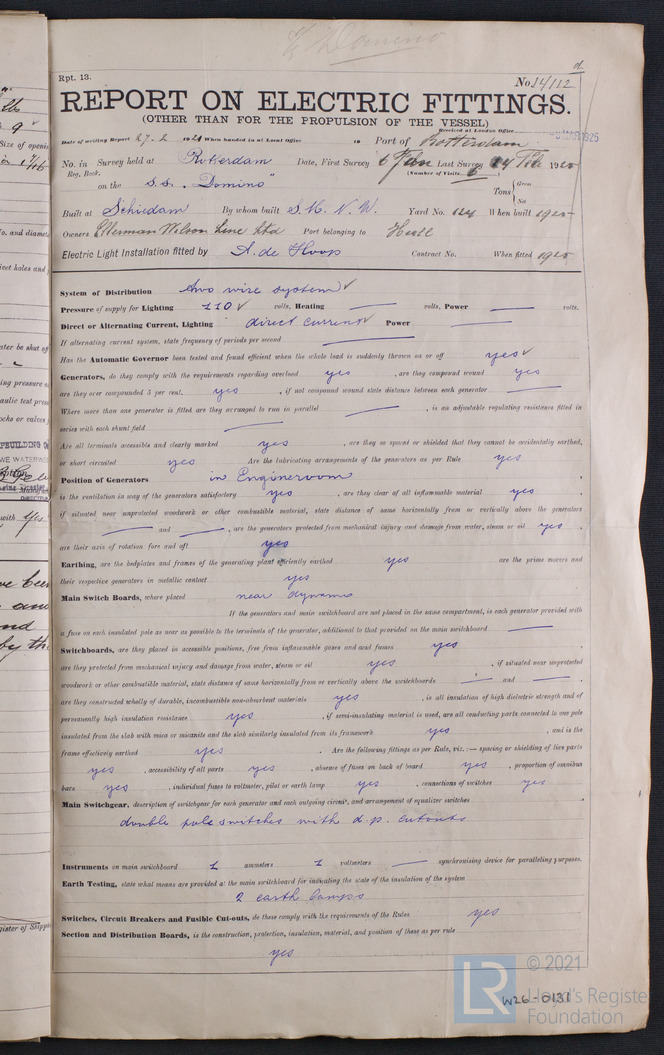 S.S. Domino
Rpt. 13.
No. 14112
REPORT ON ELECTRIC FITTINGS.
(OTHER THAN FOR THE PROPULSION OF THE VESSEL)
Received at London Office
Date of writing Report 27-2 1925 When handed in at Local Office 19 Port of Rotterdam
No. in Survey held at Rotterdam Date, First Survey 6 Jan Last Survey 24 Feb 1925
Reg. Book. (Number of Visits 6)
on the S.S. "Domino" Tons { Gross Net
Built at Schiedam By whom built S. M. N. W. Yard No. 124 When built 1925
Owners Ellerman Wilson Line Ltd Port belonging to Hull
Electric Light Installation fitted by A. de Hoop Contract No. When fitted 1925
System of Distribution two wire system
Pressure of supply for Lighting 110 volts, Heating — volts, Power — volts.
Direct or Alternating Current, Lighting direct current Power —
If alternating current system, state frequency of periods per second —
Has the Automatic Governor been tested and found efficient when the whole load is suddenly thrown on or off yes
Generators, do they comply with the requirements regarding overload yes, are they compound wound yes
are they over compounded 5 per cent. yes, if not compound wound state distance between each generator —
Where more than one generator is fitted are they arranged to run in parallel —, is an adjustable regulating resistance fitted in
series with each shunt field —
Are all terminals accessible and clearly marked yes, are they so spaced or shielded that they cannot be accidentally earthed,
or short circuited yes Are the lubricating arrangements of the generators as per Rule yes
Position of Generators in Engineroom
is the ventilation in way of the generators satisfactory yes, are they clear of all inflammable material yes
if situated near unprotected woodwork or other combustible material, state distance of same horizontally from or vertically above the generators
— and —, are the generators protected from mechanical injury and damage from water, steam or oil yes.
are their axis of rotation fore and aft yes
Earthing, are the bedplates and frames of the generating plant efficiently earthed yes are the prime movers and
their respective generators in metallic contact yes
Main Switch Boards, where placed near dynamo
If the generators and main switchboard are not placed in the same compartment, is each generator provided with
a fuse on each insulated pole as near as possible to the terminals of the generator, additional to that provided on the main switchboard —
Switchboards, are they placed in accessible positions, free from inflammable gases and acid fumes yes.
are they protected from mechanical injury and damage from water, steam or oil yes, if situated near unprotected
woodwork or other combustible material, state distance of same horizontally from or vertically above the switchboards — and —,
are they constructed wholly of durable, incombustible non-absorbent materials yes, is all insulation of high dielectric strength and of
permanently high insulation resistance yes, if semi-insulating material is used, are all conducting parts connected to one pole
insulated from the slab with mica or micanite and the slab similarly insulated from its framework yes, and is the
frame effectively earthed yes. Are the following fittings as per Rule, viz.:— spacing or shielding of live parts
yes, accessibility of all parts yes, absence of fuses on back of board yes, proportion of omnibus
bars yes, individual fuses to voltmeter, pilot or earth lamp yes, connections of switches yes.
Main Switchgear, description of switchgear for each generator and each outgoing circuit, and arrangement of equalizer switches
double pole switches with d.p. cutouts
Instruments on main switchboard 1 ammeters 1 voltmeters — synchronising device for paralleling purposes.
Earth Testing, state what means are provided at the main switchboard for indicating the state of the insulation of the system
2 earth lamps
Switches, Circuit Breakers and Fusible Cut-outs, do these comply with the requirements of the Rules yes
Section and Distribution Boards, is the construction, protection, insulation, material, and position of these as per rule
yes
W26-0131
LR © 2021
Lloyd's Register
Foundation